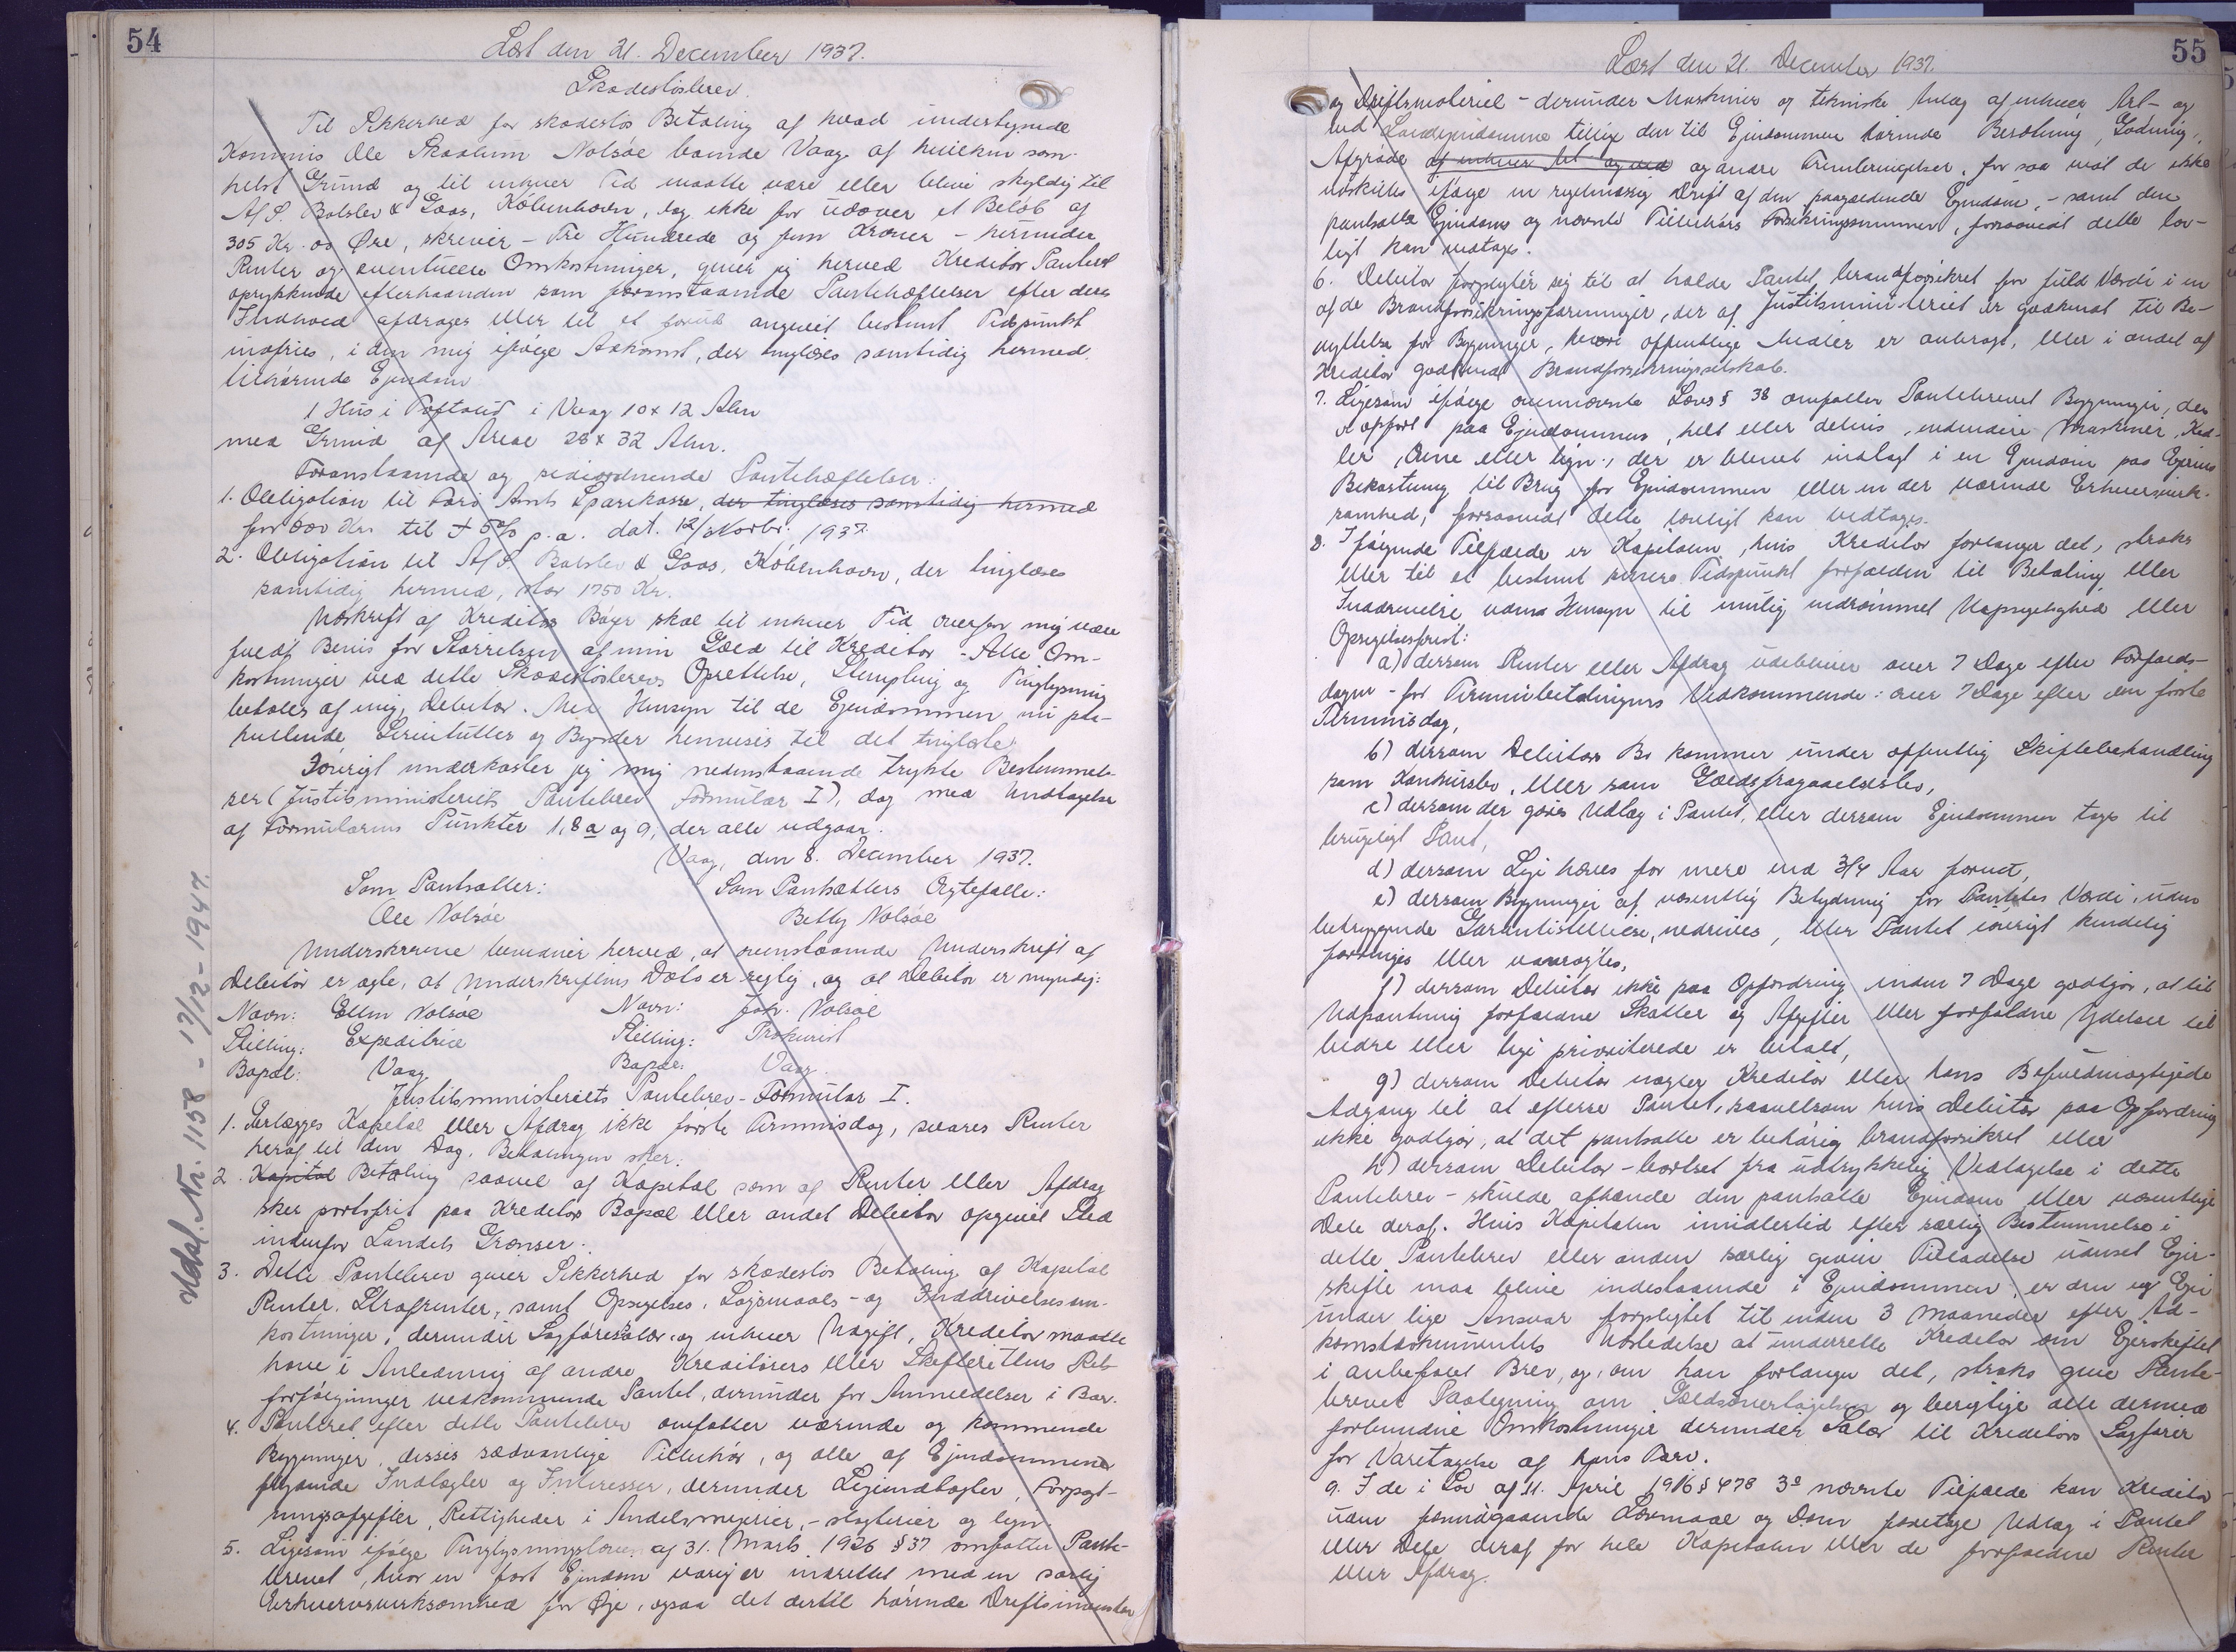 54
Læst den 21. December 1937.
Skadesløsbrev.
Til Sikkerhed for skadesløs Betaling af hvad undertegnede
Kommis Ole Skaalum Nolsöe boende Vaag af hvilken som-
helst Grund og til enhver Tid maatte være eller blive skyldig til
A/S. Balslev & Gaas, København, dog ikke for udover et Beløb af
305 Kr. 00 Øre, skriver - Tre Hundrede og fem Kroner - herunder
Renter og eventuelle Omkostninger, giver jeg herved Kreditor Panteret
oprykkende efterhaanden som foranstaaende Pantehæftelser efter deres
Indhold afdrages eller til et forud angivet bestemt Tidspunkt
indfries, i den mig ifølge Adkomst, der tinglæses samtidig hermed,
tilhørende Ejendom
1 Hus i Toftalid i Vaag 10 x 12 Alen
med Grund af Areal 28 x 32 Alen.
Foranstaaende og sideordnende Pantehæftelser:
1. Obligation til Færø Amts Sparekasse, der tinglæses samtidig hermed
for 800 Kr. til 5% p.a. dat. 12/ Novbr. 1937.
2. Obligation til A/S. Balslev & Gaas, København, der tinglæses
samtidig hermed, stor 1750 Kr.
Udskrift af Kreditors Bøger skal til enhver Tid overfor mig være
fuldt Bevis for Størrelsen af min Gæld til Kreditor - Alle Om-
kostninger ved dette Skadesløsbrevs Oprettelse, Stempling og Tinglysning
betales af mig, Debitor. Med Hensyn til de Ejendommen nu paa-
hvilende Servitutter og Byrder henvises til det tinglæste.
Iøvrigt underkaster jeg mig nedenstaaende trykte Bestemmel-
ser (Justitsministeriets Pantebrev Formular I), dog med Undtagelse
af Formularens Punkter 1, 8a og 9, der alle udgaar.
Vaag, den 8. December 1937.
Som Pantsætter: Som Pantsætters Ægtefælle:
Ole Nolsöe Betty Nolsöe
Underskrevne bevidner herved, at ovenstaaende Underskrift af
Debitor er ægte, at Underskriftens Dato er rigtig, og at Debitor er myndig:
Navn: Ellen Nolsöe Navn: Joh. Nolsöe
Stilling: Expeditrice Stilling: Prokurist
Bopæl: Vaag Bopæl: Vaag.
Justitsministeriets Pantebrev - Formular I.
1. Erlægges Kapital eller Afdrag ikke første Terminsdag, svares Renter
heraf til den Dag, Betalingen sker.
2. Kapital Betaling saavel af Kapital som af Renter eller Afdrag
sker portofrit paa Kreditors Bopæl eller andet Debitor opgivet Sted
indenfor Landets Grænser.
3. Dette Pantebrev giver Sikkerhed for skadesløs Betaling af Kapital
Renter, Strafrenter, samt Opsigelses, Søgsmaals- og Inddrivelsesom-
kostninger, derunder Sagførersalær og enhver Udgift, Kreditor maatte
have i Anledning af andre Kreditorers eller Skifterettens Ret-
forfølgninger vedkommende Pantet, derunder for Anmeldelser i Boer.
4. Panteret efter dette Pantebrev omfatter værende og kommende
Bygninger, disses sædvanlige Tilbehør, og alle af Ejendommene
flydende Indtægter og Interesser, derunder Lejeindtægter, Forpagt-
ningsafgifter, Rettigheder i Andelsmejerier, - slagterier og lign.
5. Ligesom ifølge Tinglysningsloven af 31. Marts 1926 § 37 omfatter Pante-
brevet, hvor en fast Ejendom varig er indrettet med en særlig
Erhvervsvirksomhed for Øje, ogsaa det dertil hørende Driftsinventar
Udsl. Nr. 1158 - 17/12 - 1947.
55
Læst den 21. December 1937.
og Driftsmateriel - derunder Maskiner og tekniske Anlæg af enhver Art - og
ved Landejendomme tillige den til Ejendommen hørende Besætning, Gødning,
Afgrøde af enhver Art og ved og andre Frembringelser, for saa vidt de ikke
udskilles ifølge en regelmæssig Drift af den paagældende Ejendom, - samt den
pantsatte Ejendoms og nævnte Tilbehørs Forsikringssummer, forsaavidt dette lov-
ligt kan vedtages.
6. Debitor forpligter sig til at holde Pantet brandforsikret for fuld Værdi i en
af de Brandforsikringsforeninger, der af Justitsministeriet er godkendt til Be-
nyttelse for Bygninger, hvori offentlige Midler er anbragt, eller i andet af
Kreditor godkendt Brandforsikringsselskab.
7. Ligesom ifølge ovennævnte Lovs § 38 omfatter Pantebrevet Bygninger, der
er opført paa Ejendommen, helt eller delvis, endvidere Maskiner, Ked-
ler, Ovne eller lign., der er blevet indlagt i en Ejendom paa Ejerens
Bekostning til Brug for Ejendommen eller en der værende Erhvervsvirk-
somhed, forsaavidt dette lovligt kan vedtages.
8. I følgende Tilfælde er Kapitalen, hvis Kreditor forlanger det, straks
eller til et bestemt senere Tidspunkt forfalden til Betaling eller
Inddrivelse uden Hensyn til mulig indrømmet Uopsigelighed eller
Opsigelsesfrist:
a) dersom Renter eller Afdrag udebliver over 7 Dage efter Forfalds-
dagen - for Terminsbetalingers Vedkommende: over 7 Dage efter den første
Terminsdag,
b) dersom Debitors Bo kommer under offentlig Skiftebehandling
som Konkursbo, eller som Gældsfragaaelsesbo,
c) dersom der gøres Udlæg i Pantet, eller dersom Ejendommen tages til
brugeligt Pant,
d) dersom Leje hæves for mere end 3/4 Aar forud,
e) dersom Bygninger af væsentlig Betydning for Pantets Værdi, uden
betryggende Garantistillelse, nedrives, eller Pantet iøvrigt kendelig
forringes eller vanrøgtes,
f) dersom Debitor ikke paa Opfordring inden 7 Dage godtgør, at til
Udpantning forfaldne Skatter og Afgifter eller forfaldne Ydelser til
bedre eller lige prioriterede er betalt,
g) dersom Debitor nægter Kreditor eller hans Befuldmægtigede
Adgang til at efterse Pantet, saavelsom hvis Debitor paa Opfordring
ikke godtgør, at det pantsatte er behørig brandforsikret eller
h) dersom Debitor - bortset fra udtrykkelig Vedtagelse i dette
Pantebrev - skulde afhænde den pantsatte Ejendom eller væsentlige
Dele deraf. Hvis Kapitalen imidlertid efter særlig Bestemmelse i
dette Pantebrev eller anden særlig given Tilladelse uanset Ejer-
skifte maa blive indestaaende i Ejendommen, er den ny Ejer
under lige Ansvar forpligtet til inden 3 Maaneder efter Ad-
komstdokumentets Udstedelse at underrette Kreditor om Ejerskiftet
i anbefalet Brev, og, om han forlanger det, straks give Pante-
brevet Paategning om Gældsovertagelsen og berigtige alle dermed
forbundne Omkostninger derunder Salær til Kreditors Sagfører
for Varetagelse af hans Tarv.
9. I de i Lov af 11. April 1916 § 478 3° nævnte Tilfælde kan Kreditor
uden forudgaaende Lovmaal og Dom foretage Udlæg i Pantet
eller Dele deraf for hele Kapitalen eller de forfaldne Renter
eller Afdrag.